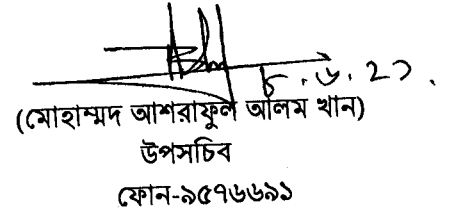 ৮.৬.২১.
(মোহাম্মদ আশরাফুল আলম খান)
উপসচিব
ফোন-৯৫৭৬৬৯১